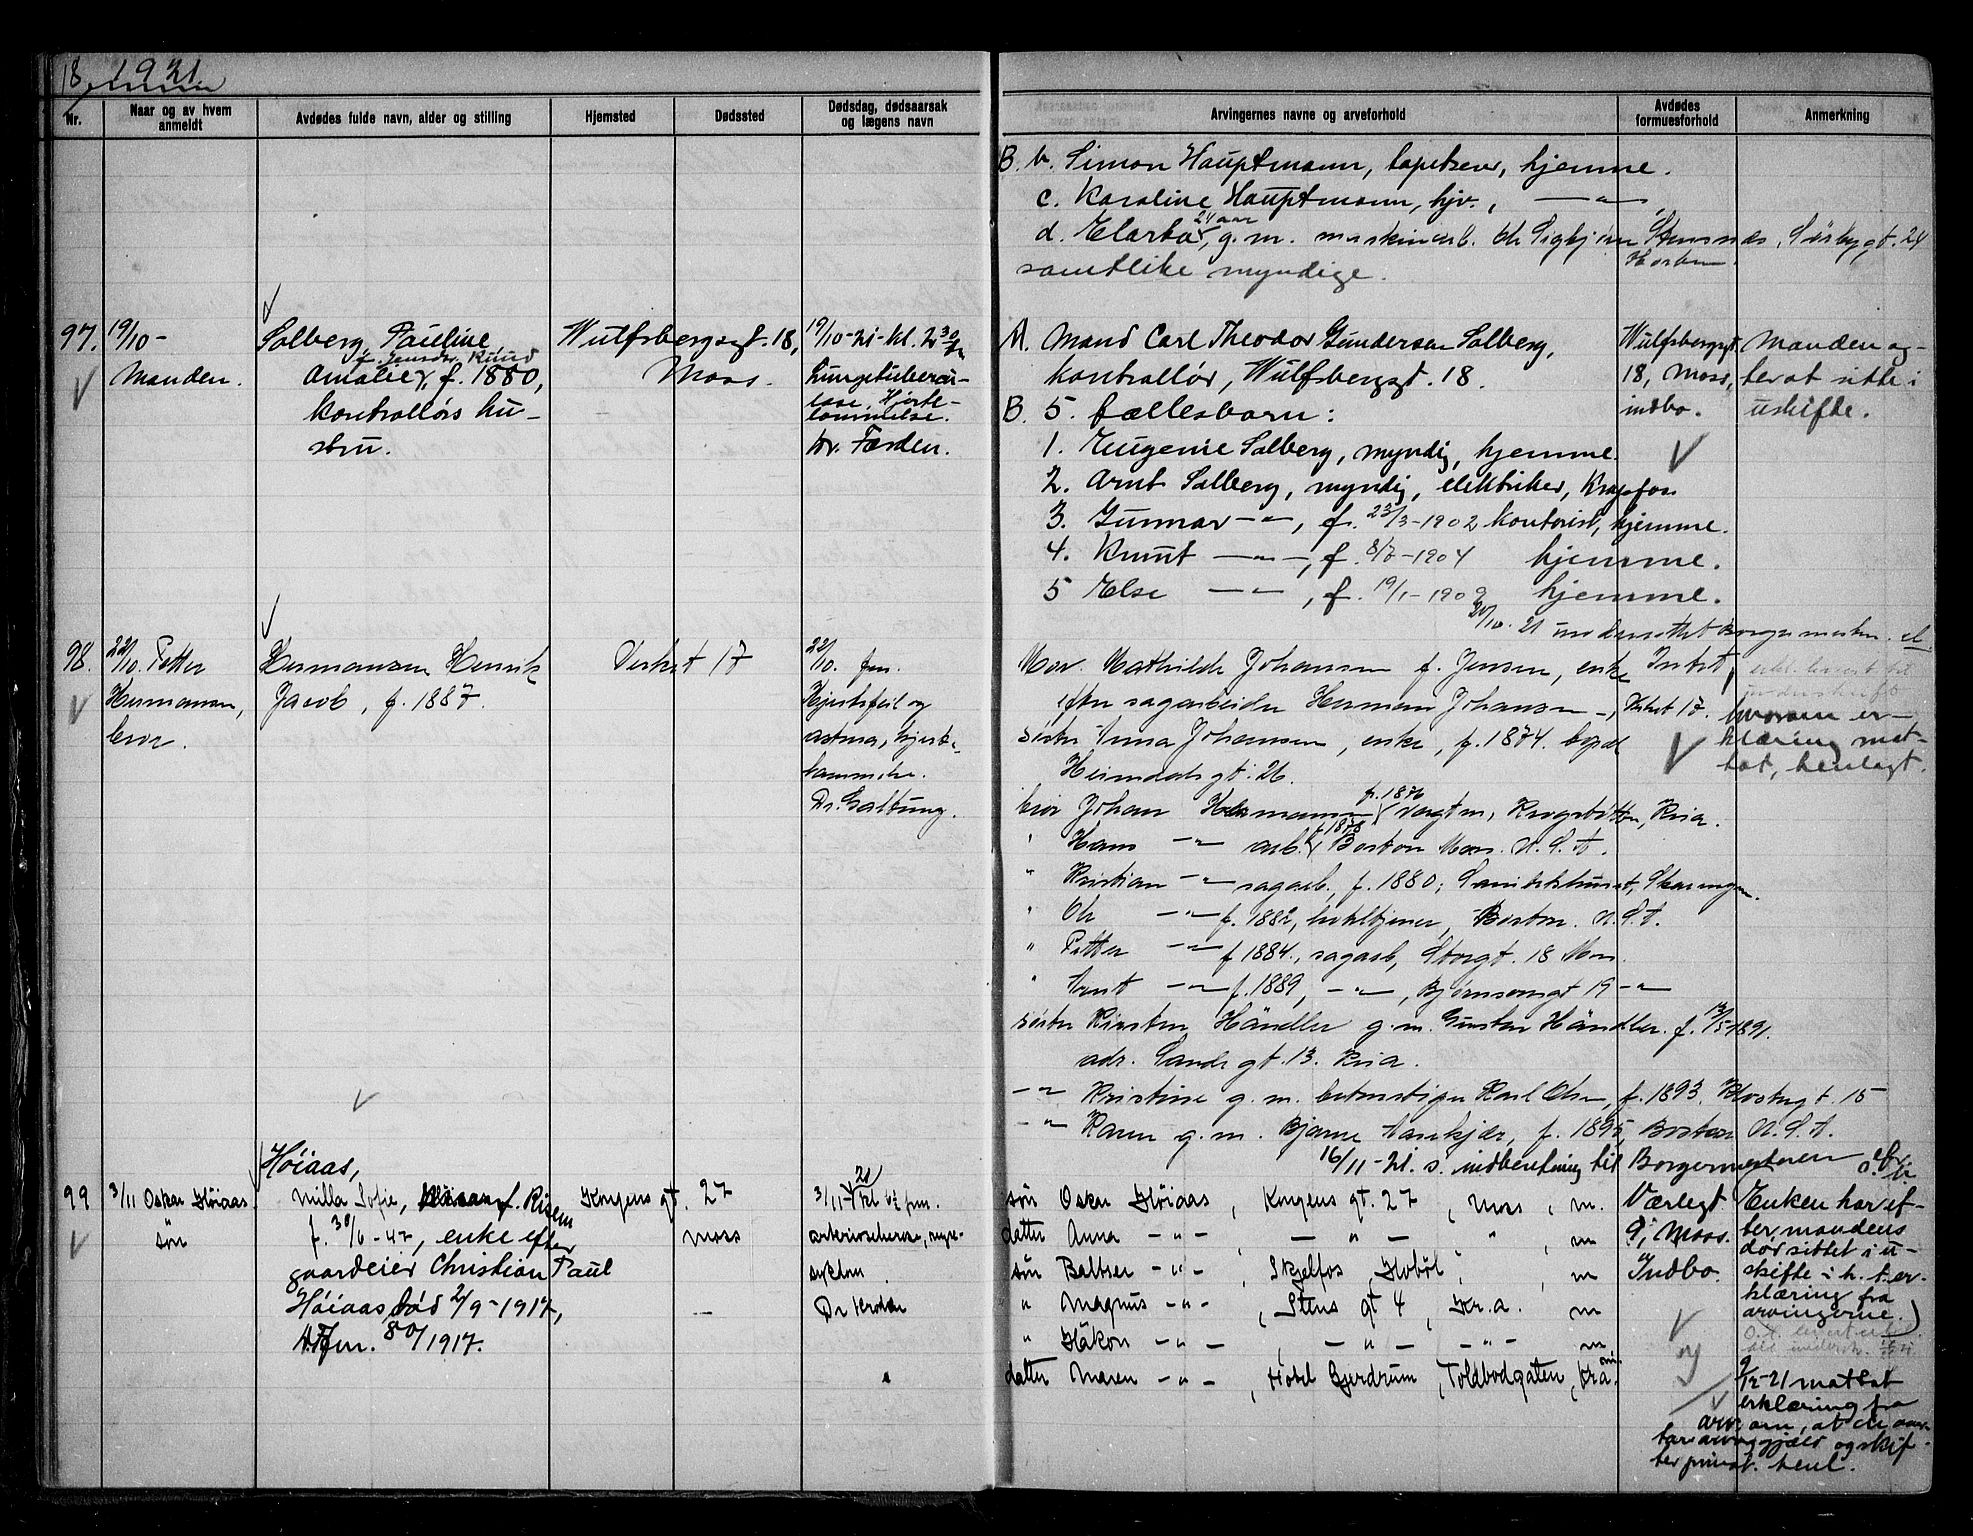 18
1921
Nr.
Naar og av hvem anmeldt
Avdødes fulde navn, alder og stilling
Hjemsted
Dødssted
Dødsdag, dødsaarsak og lægens navn
Arvingernes navne og arveforhold
Avdødes formuesforhold
Anmerkning
B. b. Simon Hauptmann, tapetserer, hjemme.
c. Karoline Hauptmann, hjv., — " —
24 aar
d. g. m. maskinarb. Sørbygt. 24
Horten
samtlike myndige.
97. 19/10 –
Manden.
Solberg, Pauline
f. Ruud
Amalie, f. 1880,
kontrollørs hu-
stru.
Wulfsbergsgt. 18,
Moss.
19/10-21-kl.
Lungetubercu-
lose, Hjerte-
lammelse.
Dr. Førden.
A. Mand Carl Theodor Gundersen Solberg,
kontrollør, Wulfsbergsgt. 18.
B. 5. fællesbarn:
1. Eugenie Solberg, myndig, hjemme.
2. Arnt Solberg, myndig, elektriker, Krapfos
3. Gunnar — " —, f. 23/3-1902 kontorist, hjemme.
4. Knut — " —, f. 8/7-1904 hjemme.
5 Else — " —, f. 19/1-1909 hjemme.
Wulfsbergsgt.
18, Moss,
indbo.
Manden ag-
ter at sitte i
uskifte.
98. 22/10. Petter
Hermansen,
bror.
Hermansen Henrik
Jacob, f. 1887.
Verkst 17
22/10. fm.
Hjertefeil og
astma, hjerte-
lammelse.
Dr. Galtung.
20/10. 21 underrettet Borgermesteren.
Mor. Mathilde Johansen f. Jensen, enke
efter sagarbeider Herman Johansen –, Verkst 17.
Intet
søster Anna Johansen, enke, f. 1874. bopæl
Heimdalsgt. 26.
hvorom er-
klæring mot-
tat, henlagt.
bror Johan Hermansen f. 1876 Kria.
" Hans — " — arb. f. 1878 Boston Mass. U. S. A.
" Kristian — " — sagarb., f. 1880;
" Ole — " — f. 1882, hoteltjener, Boston. U. S. A.
" Petter — " — f 1884., sagarb, Storgt. 18 Moss.
" Arnt — " — f. 1889, — " —, Bjørnsonsgt 19 — " —
søster Kirsten Händler g. m. Gustav Händler. f. 1891.
adr. Sandsgt. 13. Kria.
— " — Kristine g. m. Karl Olsen, f. 1893. 15
— " — Karen g. m. Bjarne f. 1895, Boston U. S. A.
16/11-21. s. indberetning til Borgermesteren
99 3/11 Oskar Høiaas.
søn
Høiaas,
Milla Sofie, f. Risem
f. 30/6-47, enke efter
gaardeier Christian Paul
Høiaas, død 2/9-1917,
80/1917.
Kongens gt. 27
Moss
3/11-21 kl fm.
arteriosclerose,
Dr Krohn
søn Oskar Høiaas, Kongens gt. 27, Moss, m.
datter Anna — " —, — " — " , m
søn Baltser — " —, Skjelfos, Hobøl, , m
" Magnus — " —, Stens gt 4, Kr.a. m
" Håkon — " —, — " — — " — m
datter Maren — " —, Hotel Gjerdrum, Toldbodgaten, Kra.
Værlegt.
9, Moss.
Indbo.
Enken har ef-
ter mandens
død sittet i u-
skifte i h. t. er-
klæring fra
arvingerne.
9/12-21 mottat
erklæring fra
arv. om, at de over-
tar arv og gjæld og skif-
ter privat. henl.